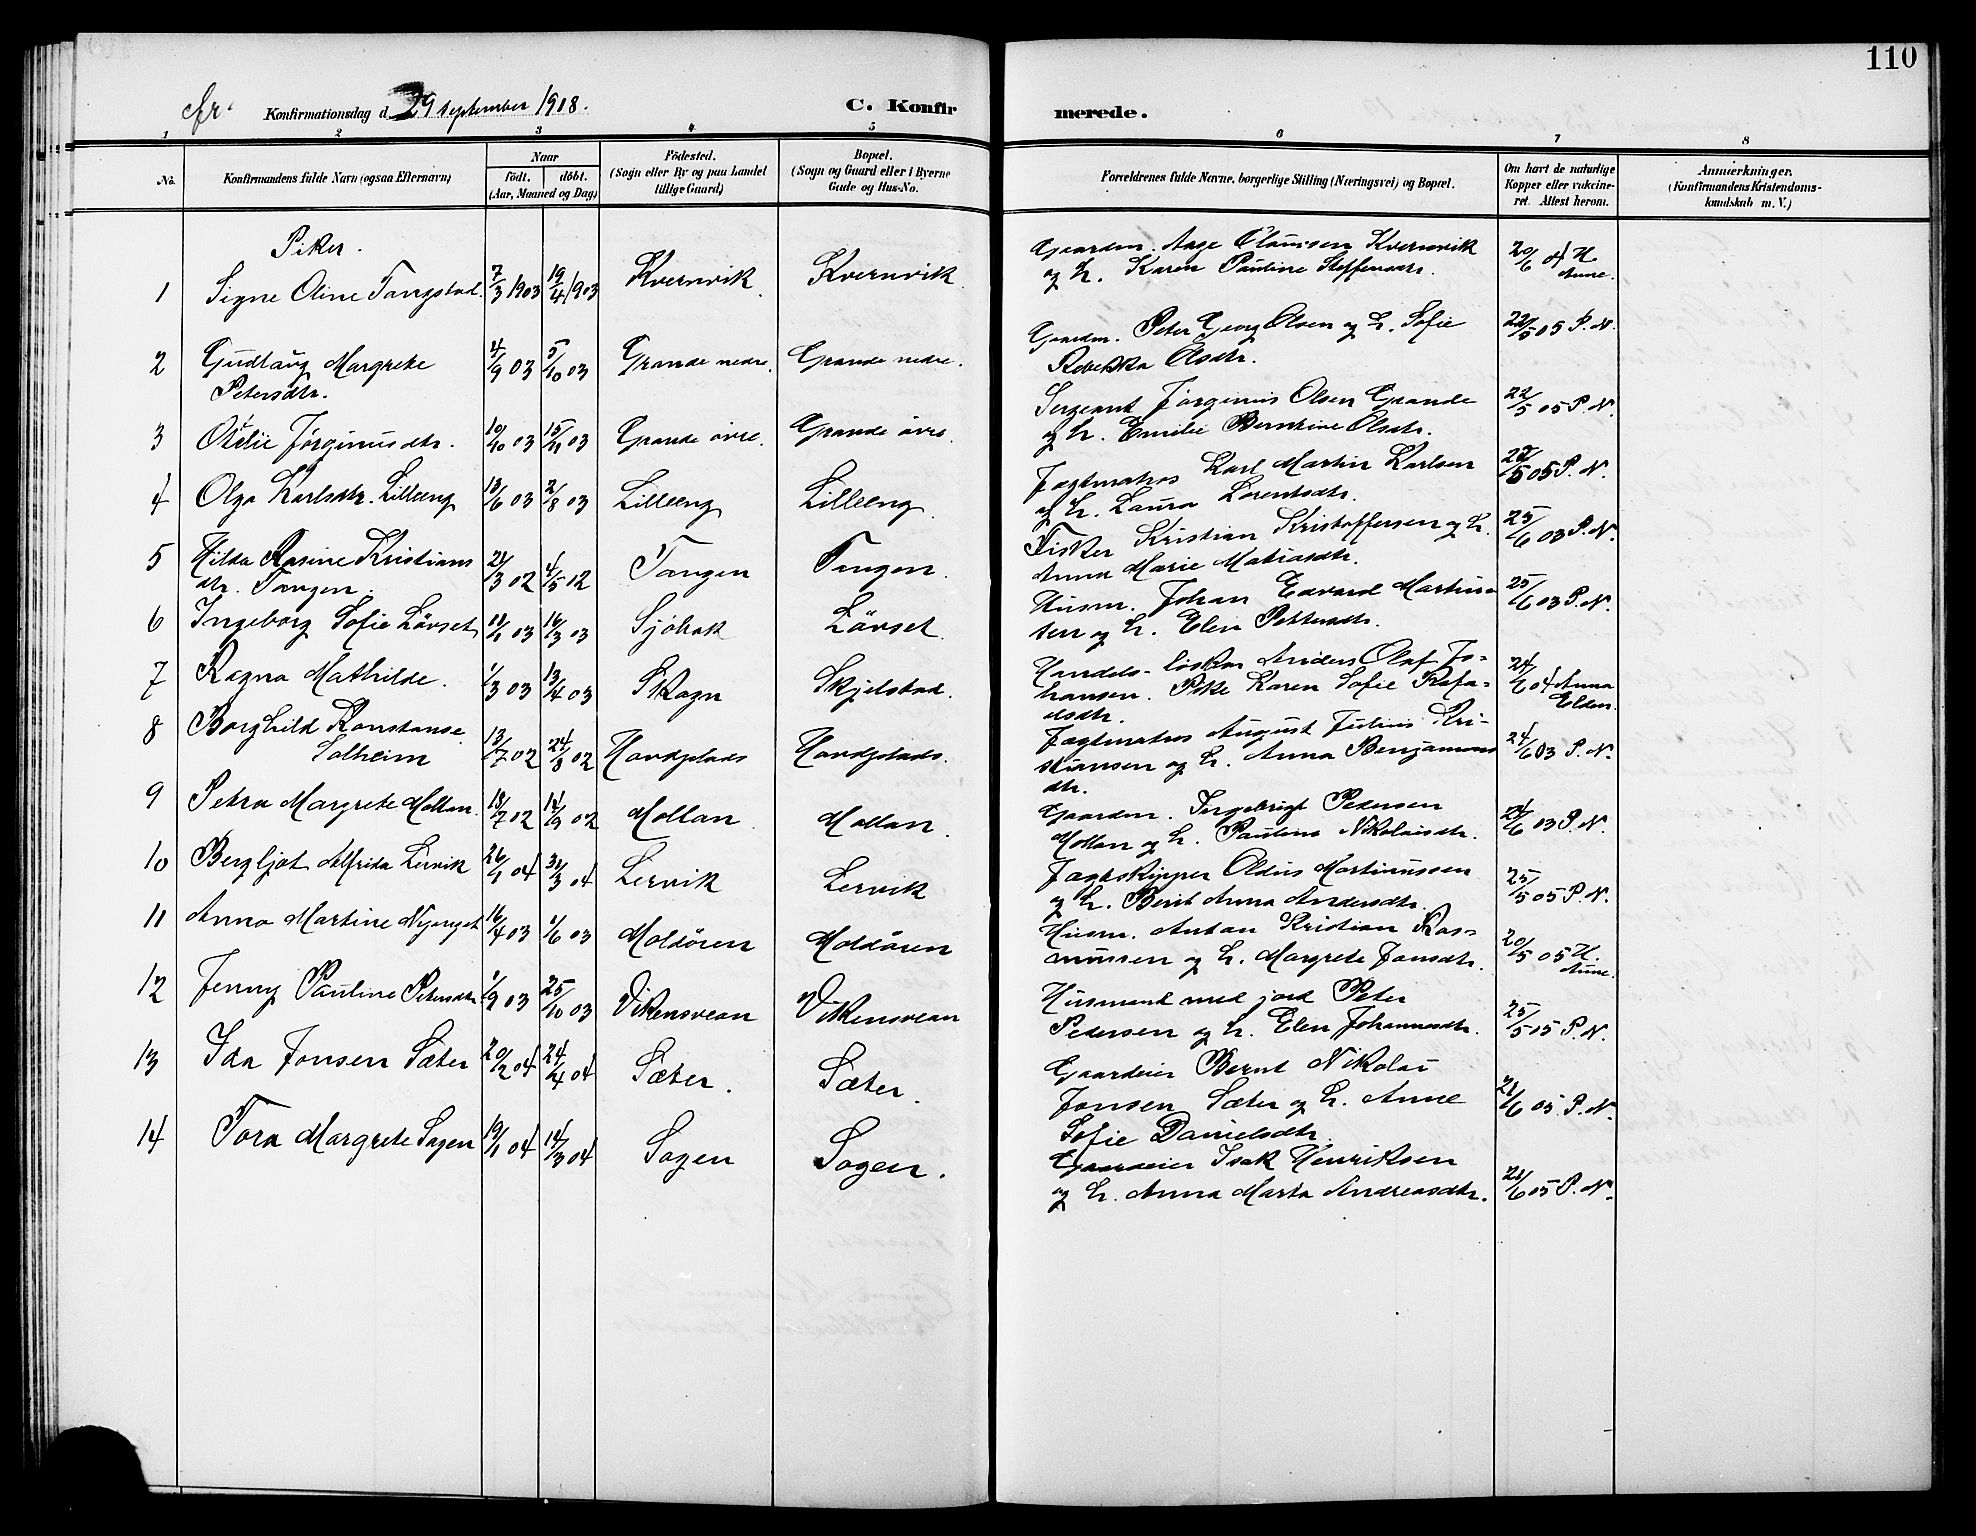 110
Konfirmationsdag d. 29 september 1918.
C. Konfirmerede.
1 2 3 4 5 6 7 8
No.
Konfirmandens fulde Navn (ogsaa Efternavn)
Naar
födt. döbt.
(Aar, Maaned og Dag)
Födested.
(Sogn eller By og paa Landet
tillige Gaard)
Bopæl.
(Sogn og Gaard eller i Byerne
Gade og Hus-No.
Forældrenes fulde Navne, borgerlige Stilling (Næringsvei) og Bopæl.
Om havt de naturlige
Kopper eller vakcine-
ret. Attest herom.
Anmærkninger.
(Konfirmandens Kristendoms-
kundskab m. V.)
Piker.
1 Signe Oline Tangstad. 7/3 1903 19/4 1903 Kvernvik. Kvernvik.
Gaardm. Aage Kvernvik
og h. Karen Pauline Steffensdtr. 20/6 04 H. Aune.
2 Gudlaug Margrete
Petersdtr. 4/9 03 5/10 03 Grande nedre. Grande nedre.
Gaardm. Peter Georg Olsen og h. Sofie
Rebekka Olsdtr. 22/5 05 P. N.
3 Otelie Jørginusdtr. 10/10 03 15/11 03 Grande övre. Grande övre.
Sergeant Jørginus Olsen Grande
og h. Emilie Berntine Olsdtr. 22/5 05 P. N.
4 Olga Karlsdtr. Lilleeng 18/6 03 2/8 03 Lilleeng Lilleeng.
Jægtmatros Karl Martin Karlsen
og h. Laura Lorentsdtr. 22/5 05 P. N.
5 Hilda Rasine Kristians
dtr. Tangen. 21/3 02 4/5 02 Tangen Tangen.
Fisker Kristian Kristoffersen og h.
Anna Marie Matiasdtr. 25/6 03 P. N.
6 Ingeborg Sofie Lövset 18/1 03 16/3 03 Sjöbak Lövset.
Husm. Johan Edvard Martin
sen og h. Elen Pettersdtr. 25/6 03 P. N.
7 Ragna Mathilde. 1/3 03 13/4 03 Skogn Skjelstad.
Handels- Anders Olaf Jo-
hansen. Pike Karen Sofie Rafa-
elsdtr. 24/6 04 Anna Elden.
8 Borghild Konstanse
Solheim 13/7 02 24/8 02 Havdplads Havdplads.
Jægtmatros August Julius Kri-
stiansen og h. Anna Benjamins
dtr. 24/6 03 P. N.
9 Petra Margrete Mollan. 18/7 02 14/9 02 Mollan Mollan.
Gaardm. Ingebrigt Pedersen
Mollan og h. Pauline Nikolaisdtr. 24/6 03 P. N.
10 Bergljot Alfrida Lervik 26/1 04 31/3 04 Lervik Lervik
Jægtskipper Oldus Martinussen
og h. Berit Anna Andersdtr. 25/5 05 P. N.
11 Anna Martine Nyenget 16/4 03 1/6 03 Moldören Moldören
Husm. Anton Kristian Ras-
mussen og h. Margrete Jonsdtr. 20/5 05 H. Aune.
12 Jenny Pauline Petersdtr. 1/9 03 25/10 03 Vikensvean Vikensvean
Husmand med jord Peter
Pedersen og h. Elen Johannesdtr. 25/5 05 P. N.
13 Ida Jonsen Sæter 20/2 04 24/4 04 Sæter. Sæter.
Gaardeier Bernt Nikolai
Jonsen Sæter og h. Anne
Sofie Danielsdtr. 21/6 05. P. N.
14 Tora Margrete Sagen 19/1 04 14/3 04 Sagen Sagen.
Gaardeier Isak Henriksen
og h. Anna Marta Andreasdtr. 21/6 05 P. N.